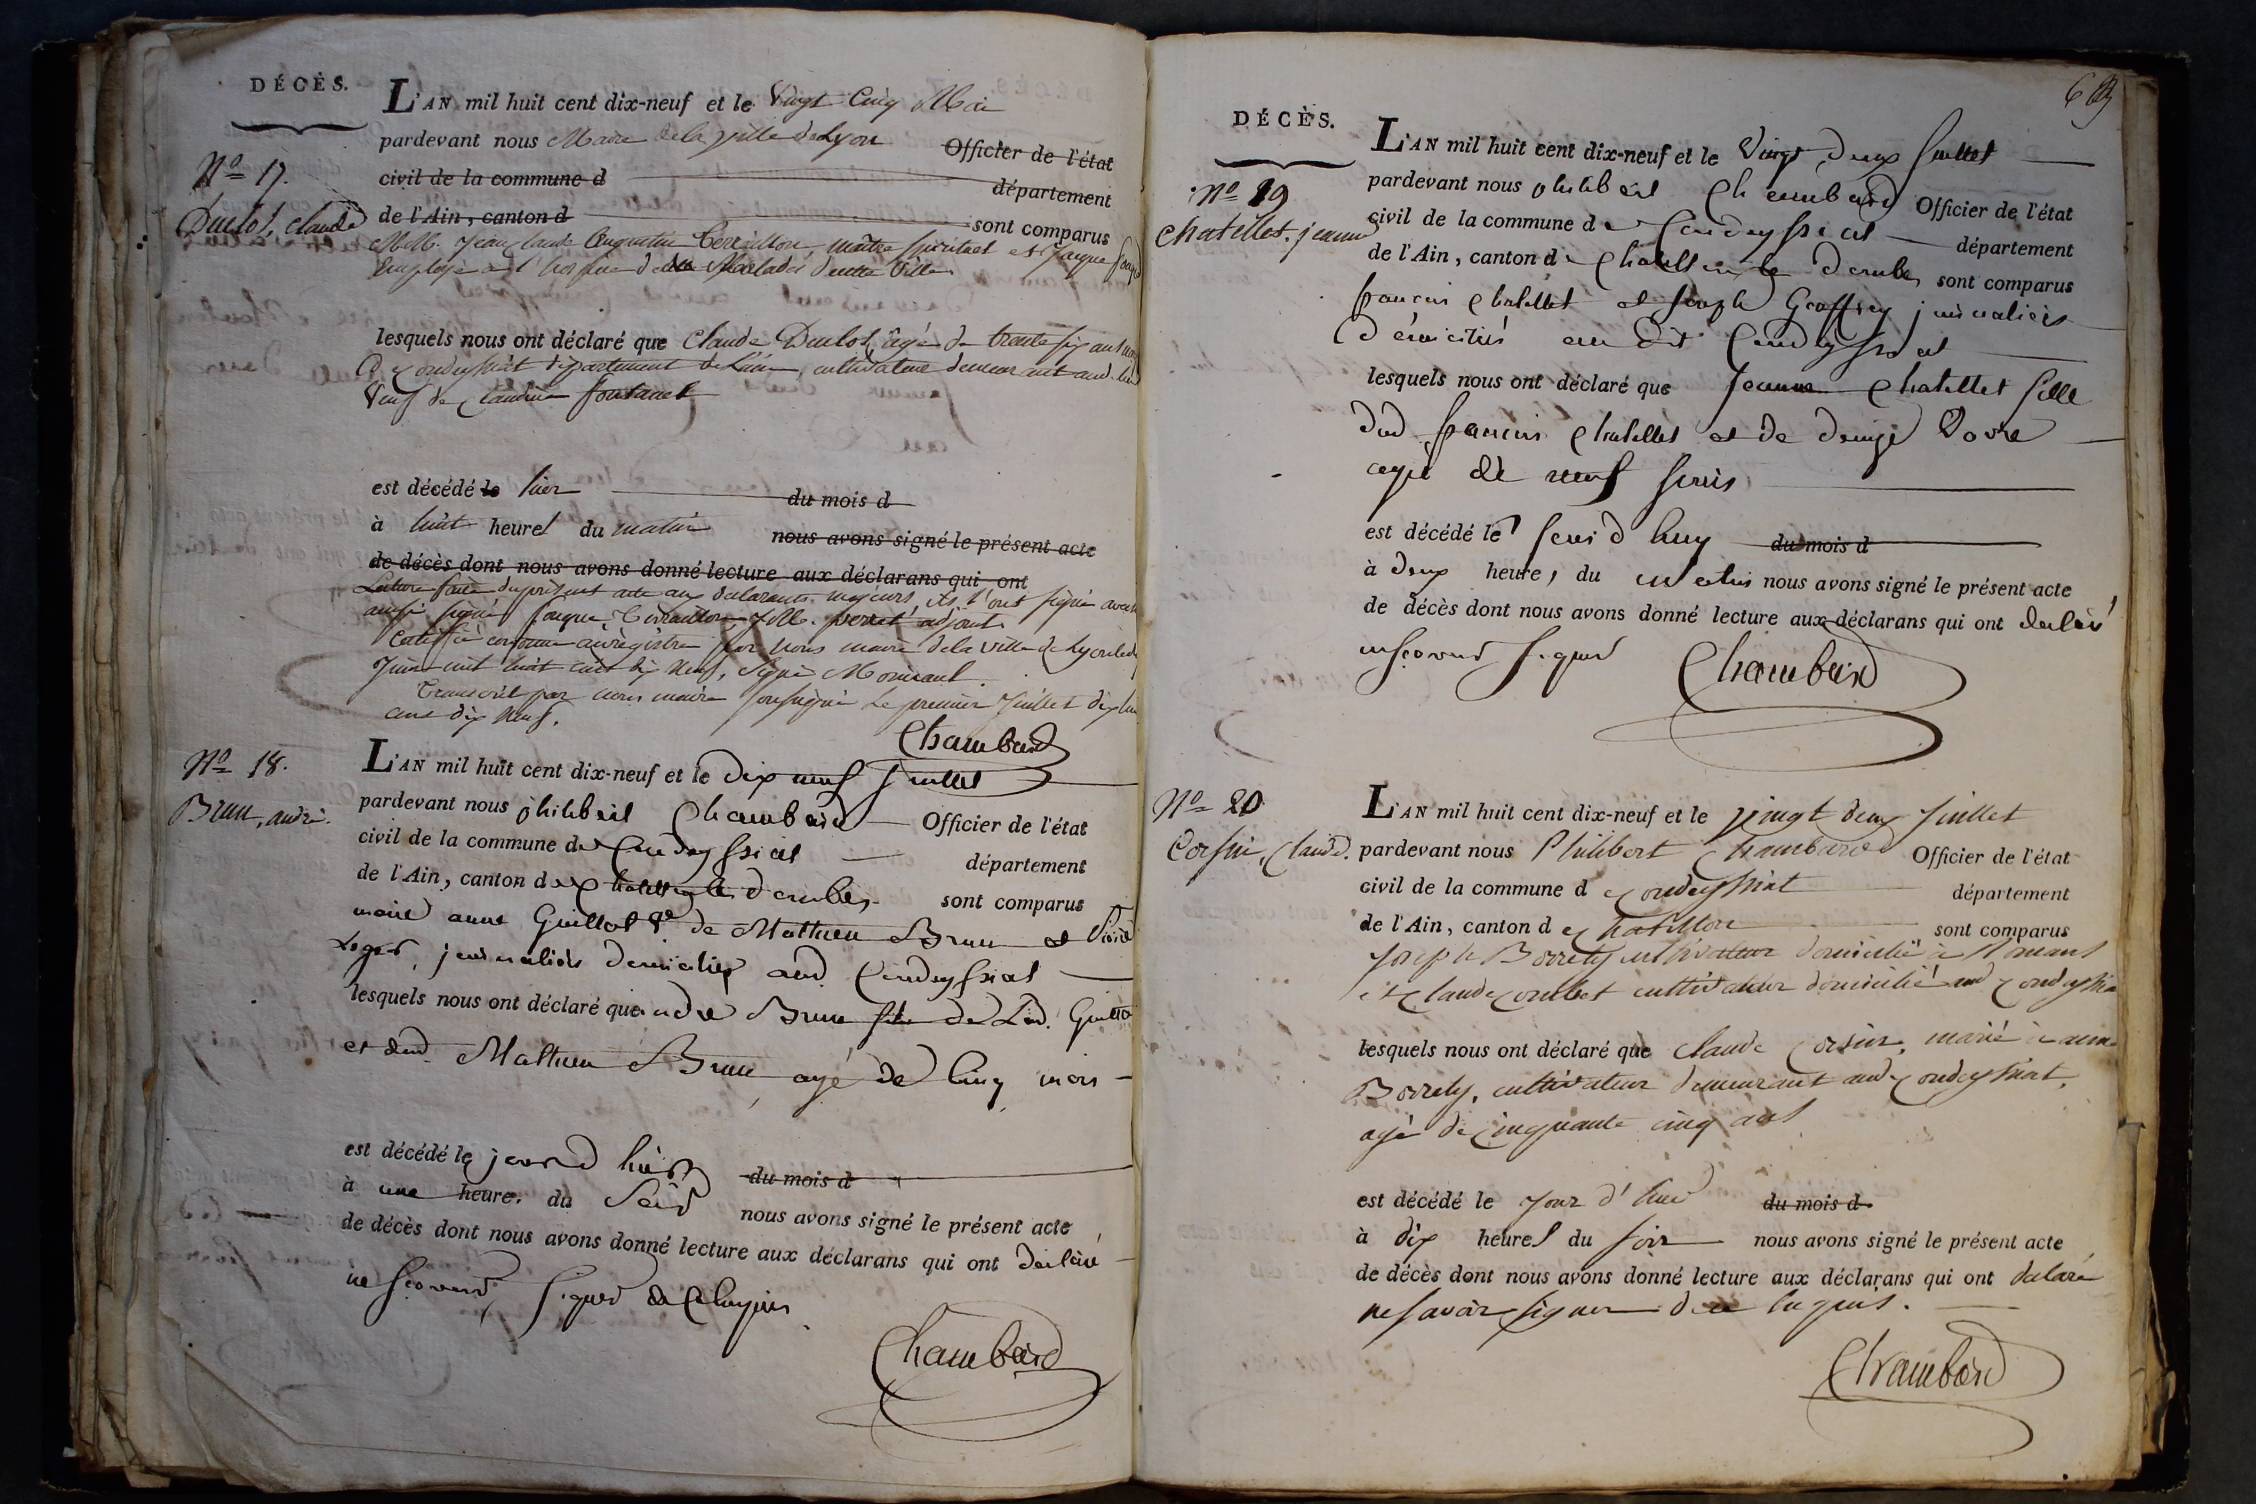 DÉCÈS.
L'AN mil huit cent dix-neuf et le Vingt Cinq Mai
pardevant nous Maire de la ville de Lyon Officier de l'état
civil de la commune d département
de l'Ain, canton d sont comparus
No 17.
Duclos, claude
MM. Jean claude Augustin maître spirituel et Jaque
Employé à l'hospice de Malades de cette Ville
lesquels nous ont déclaré que Claude Duclos, âgé de trente six ans
à Condeyssiat département de L'ain, cultivateur demeurant aud. lieu
Veuf de Claudine fontanel
est décédé le hier du mois d
à huit heures du matin nous avons signé le présent acte
de décès dont nous avons donné lecture aux déclarans qui ont
Lecture faite du présent acte aux déclarants majeurs, ils l'ont signé avec
ainsi signé Jaque, adjoint.
Certifié conforme au régistre par nous maire de la ville de Lyon le
Juin mil huit cent dix neuf, signé
Transcrit par nous maire soussigné Le premier Juillet dix huit
cent dix neuf.
Chambard
No 18.
Brun, andré.
L'AN mil huit cent dix-neuf et le dix neuf Juillet
pardevant nous philibert Chambard Officier de l'état
civil de la commune de Condeyssiat département
de l'Ain, canton de Chatillon les dombes sont comparus
marie anne Guillot Ve de Mathieu Brun et
Loger, journaliers domiciliés aud. Condeyssiat
lesquels nous ont déclaré que andre Brun fils de Lad. Guillot
et dud. Mathieu Brun agé de Cinq mois
est décédé le jourd huy du mois d
à une heure. du Soir nous avons signé le présent acte
de décès dont nous avons donné lecture aux déclarans qui ont declaré
ne Scavoir Signer de Ce Enquis.
Chambard
DÉCÈS.
No 19
Chatellet, jeanne
L'AN mil huit cent dix-neuf et le Vingt deux Juillet
pardevant nous philibert Chambard Officier de l'état
civil de la commune de Condeyssiat département
de l'Ain, canton de Chatillon les dombes sont comparus
francois Chatellet et Joseph Geoffrey journaliers
domiciliés au dit Condeyssiat
lesquels nous ont déclaré que Jeanne Chatellet fille
dud francois Chatellet et de denize
agé de neuf
est décédé le jourd huy du mois d
à deux heures du matin nous avons signé le présent acte
de décès dont nous avons donné lecture aux déclarans qui ont declaré
ne Scavoir Signer Chambard
No 20
Corsin, Claude.
L'AN mil huit cent dix-neuf et le vingt deux Juillet
pardevant nous Philibert Chambard Officier de l'état
civil de la commune de Condeyssiat département
de l'Ain, canton de Chatillon sont comparus
Joseph Borrely cultivateur domicilié à Romans
et Claude Combet cultivateur domicilié aud Condeyssiat
lesquels nous ont déclaré que Claude Corsin, marié à anne
Borrely, cultivateur demeurant aud. Condeyssiat,
agé de Cinquante cinq ans
est décédé le Jour d'hui du mois d
à dix heures du soir nous avons signé le présent acte
de décès dont nous avons donné lecture aux déclarans qui ont déclaré
ne Savoir signer de ce Enquis.
Chambard